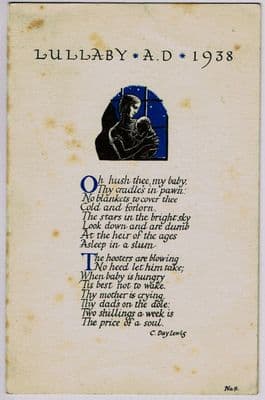 LULLABY * A.D * 1938
Oh hush thee, my baby,
Thy cradles in pawn:
No blankets to cover thee
Cold and forlorn.
The stars in the bright sky
Look down and are dumb
At the heir of the ages
Asleep in a slum.
The hooters are blowing
No heed let him take;
When baby is hungry
Tis best not to wake.
Thy mother is crying,
Thy dads on the dole:
Two shillings a week is
The price of a soul.
C. Day Lewis